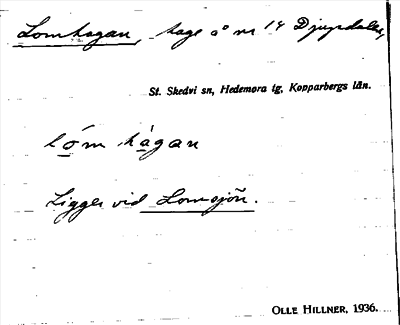 Lomhagan, hage å nr 14 Djupdalen,
St. Skedvi sn, Hedemora tg, Kopparbergs län.
lóm hàgan
Ligger vid Lomsjön.
OLLE HILLNER, 1936.